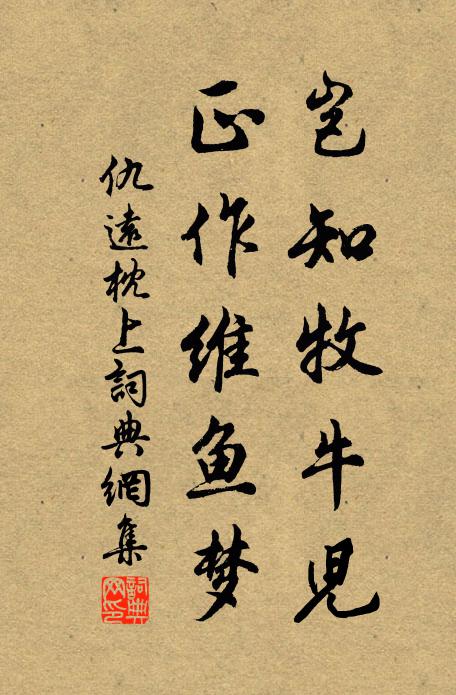 岂知牧牛児
正作维鱼梦
仇遠枕上詞典網集
詞典网印